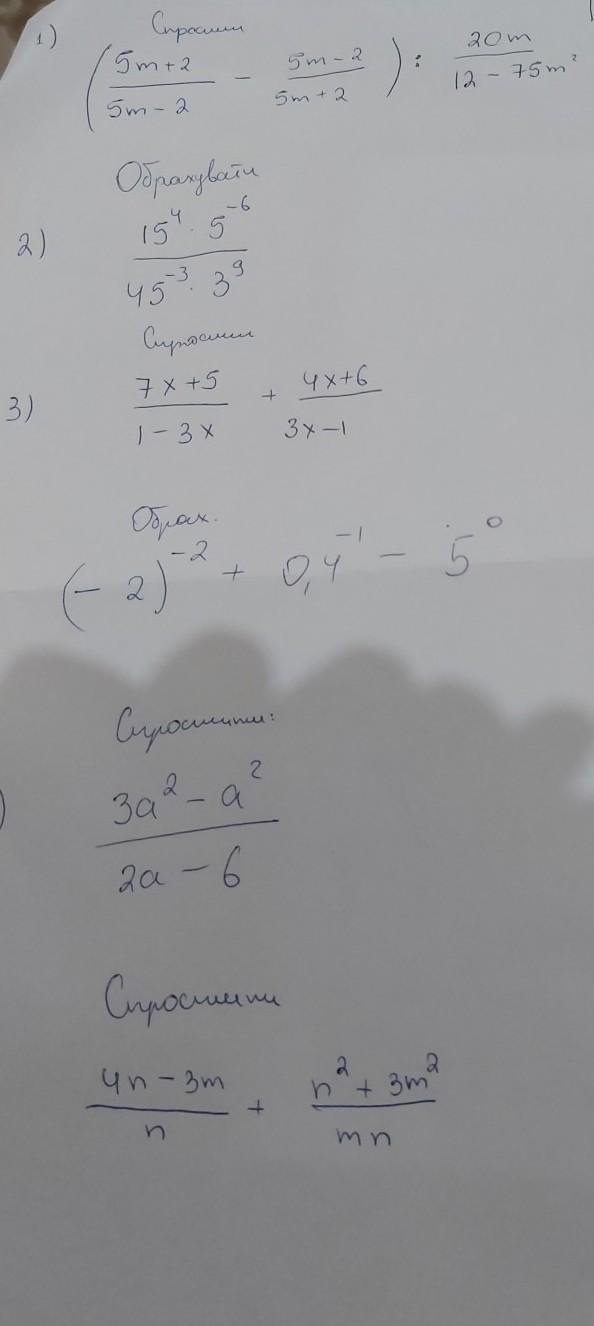 Спрости
1) ( 5m+2 / 5m-2 - 5m-2 / 5m+2 ) : 20m / 12-75m²
Обрахувати
2) 15⁴ · 5⁻⁶ / 45⁻³ · 3⁹
Спрости
3) 7x+5 / 1-3x + 4x+6 / 3x-1
Обрах.
(-2)⁻² + 0,4⁻¹ - 5⁰
Спростити:
) 3a² - a² / 2a - 6
Спростити
4n - 3m / n + n² + 3m² / mn